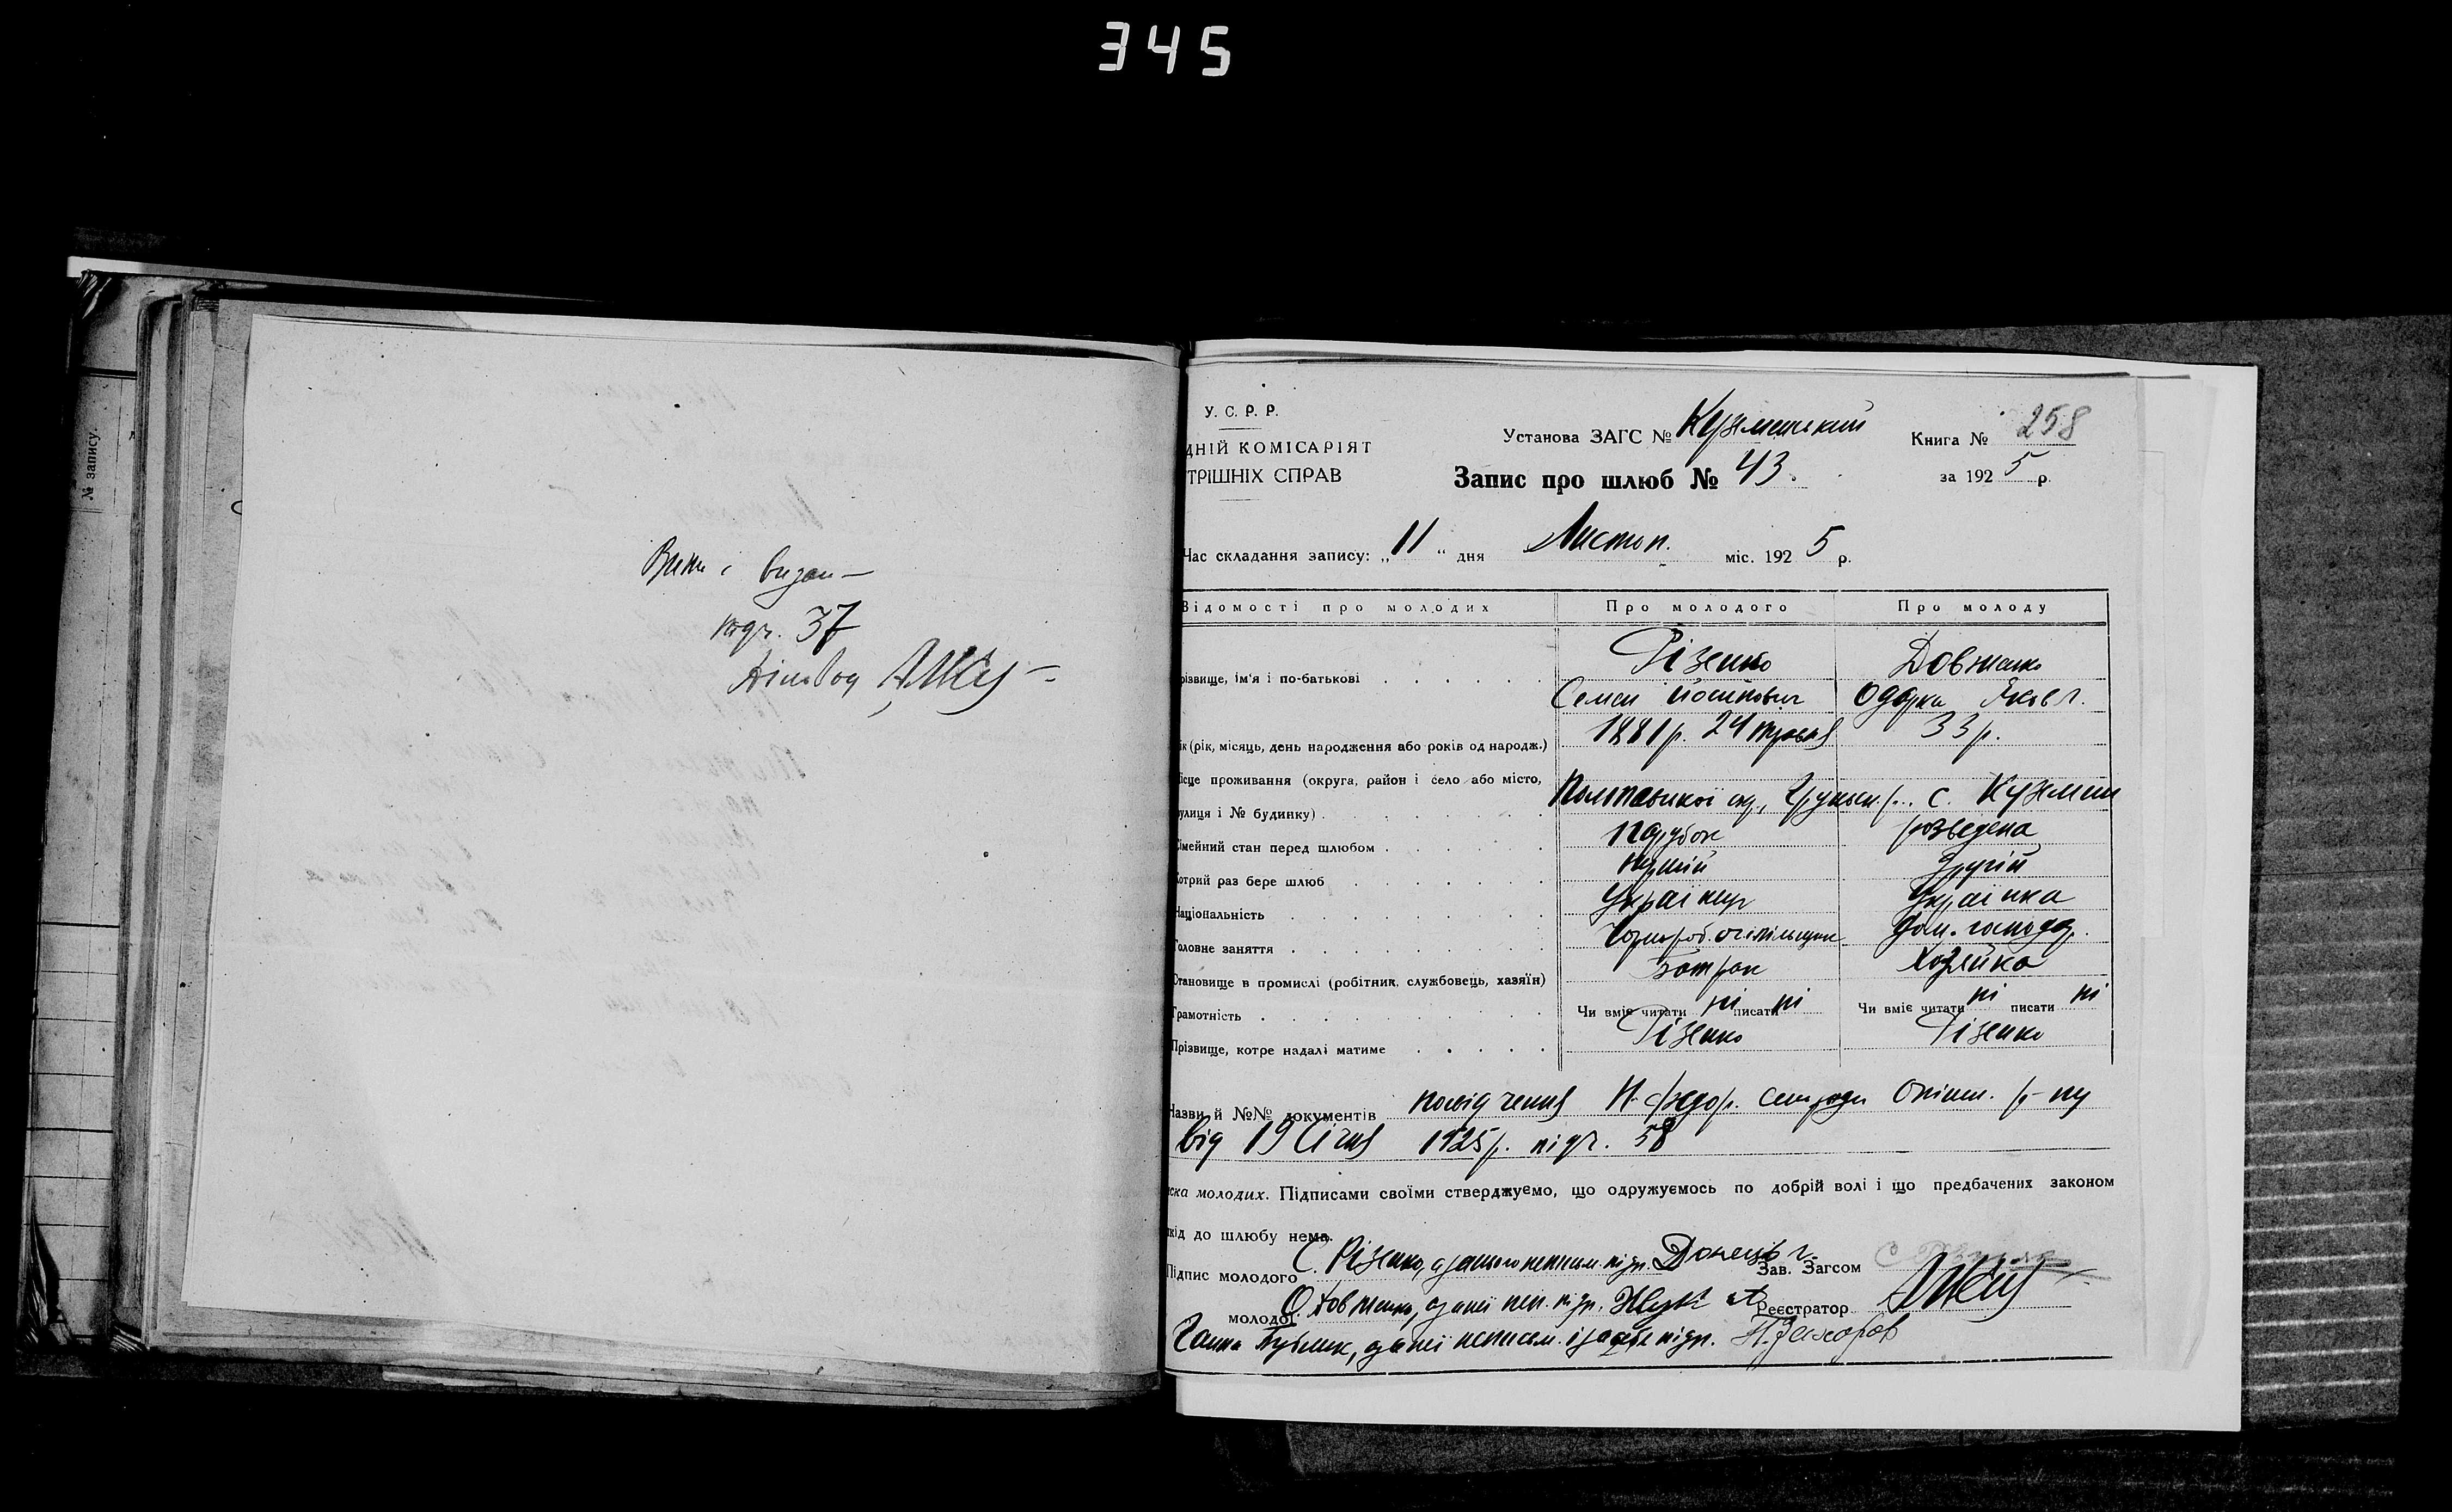 345
№ запису.
Випис видан
під ч. 37
У. С. Р. Р.
ДНІЙ КОМІСАРІЯТ
ТРІШНІХ СПРАВ
Установа ЗАГС № Кужменський
Книга № 258
Запис про шлюб № 43.
за 1925 р.
Час складання запису: „11" дня Листоп. міс. 1925 р.
Відомості про молодих Про молодого Про молоду
різвище, ім'я і по-батькові Різенко Довженко
Семен Йосипович Одарка Яковл.
ік (рік, місяць, день народження або років од народж.) 1881 р. 24 травня 33 р.
ісце проживання (округа, район і село або місто,
улиця і № будинку) Полтавської окр., с. Кужмен
імейний стан перед шлюбом парубок розведена
отрий раз бере шлюб перший другий
Національність Українець Українка
Головне заняття дом. господар.
Становище в промислі (робітник, службовець, хазяїн) батрак хозяйка
Грамотність Чи вміє читати ні писати ні Чи вміє читати ні писати ні
Прізвище, котре надалі матиме Різенко Різенко
Назви й №№ документів посвідчення сільради Опішн. р-ну
від 19 Січня 1925 р. під ч. 58
ска молодих. Підписами своїми стверджуємо, що одружуємось по добрій волі і що предбачених законом
кід до шлюбу нема.
Підпис молодого С. Різенко, а за нього неписьм. підп. Донець Зав. Загсом
молодої О. Довженко, а за неї неп. підп. Реєстратор
Ганна а за неї неписьм. підп.